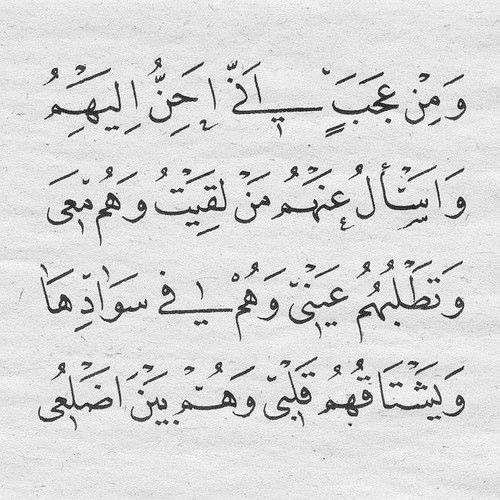 وَمِنْ عَجَبٍَ اَنّٖى اِحَنُّ اِلِيَهِمُ
وَاَسْأَلُ عِنَهَمُ مَنْ لَقِيَتُ وَهُمْ مَّعَى
وَتَطَلْبُهُمُ عَيَنْىّٖ وَهُمْ فٖى سَوَادِّهَا
وَيَشَتَاقُهُمُ قَلَبْىّٖ وَهُمْ بَيَنَ اَضَلْعُى